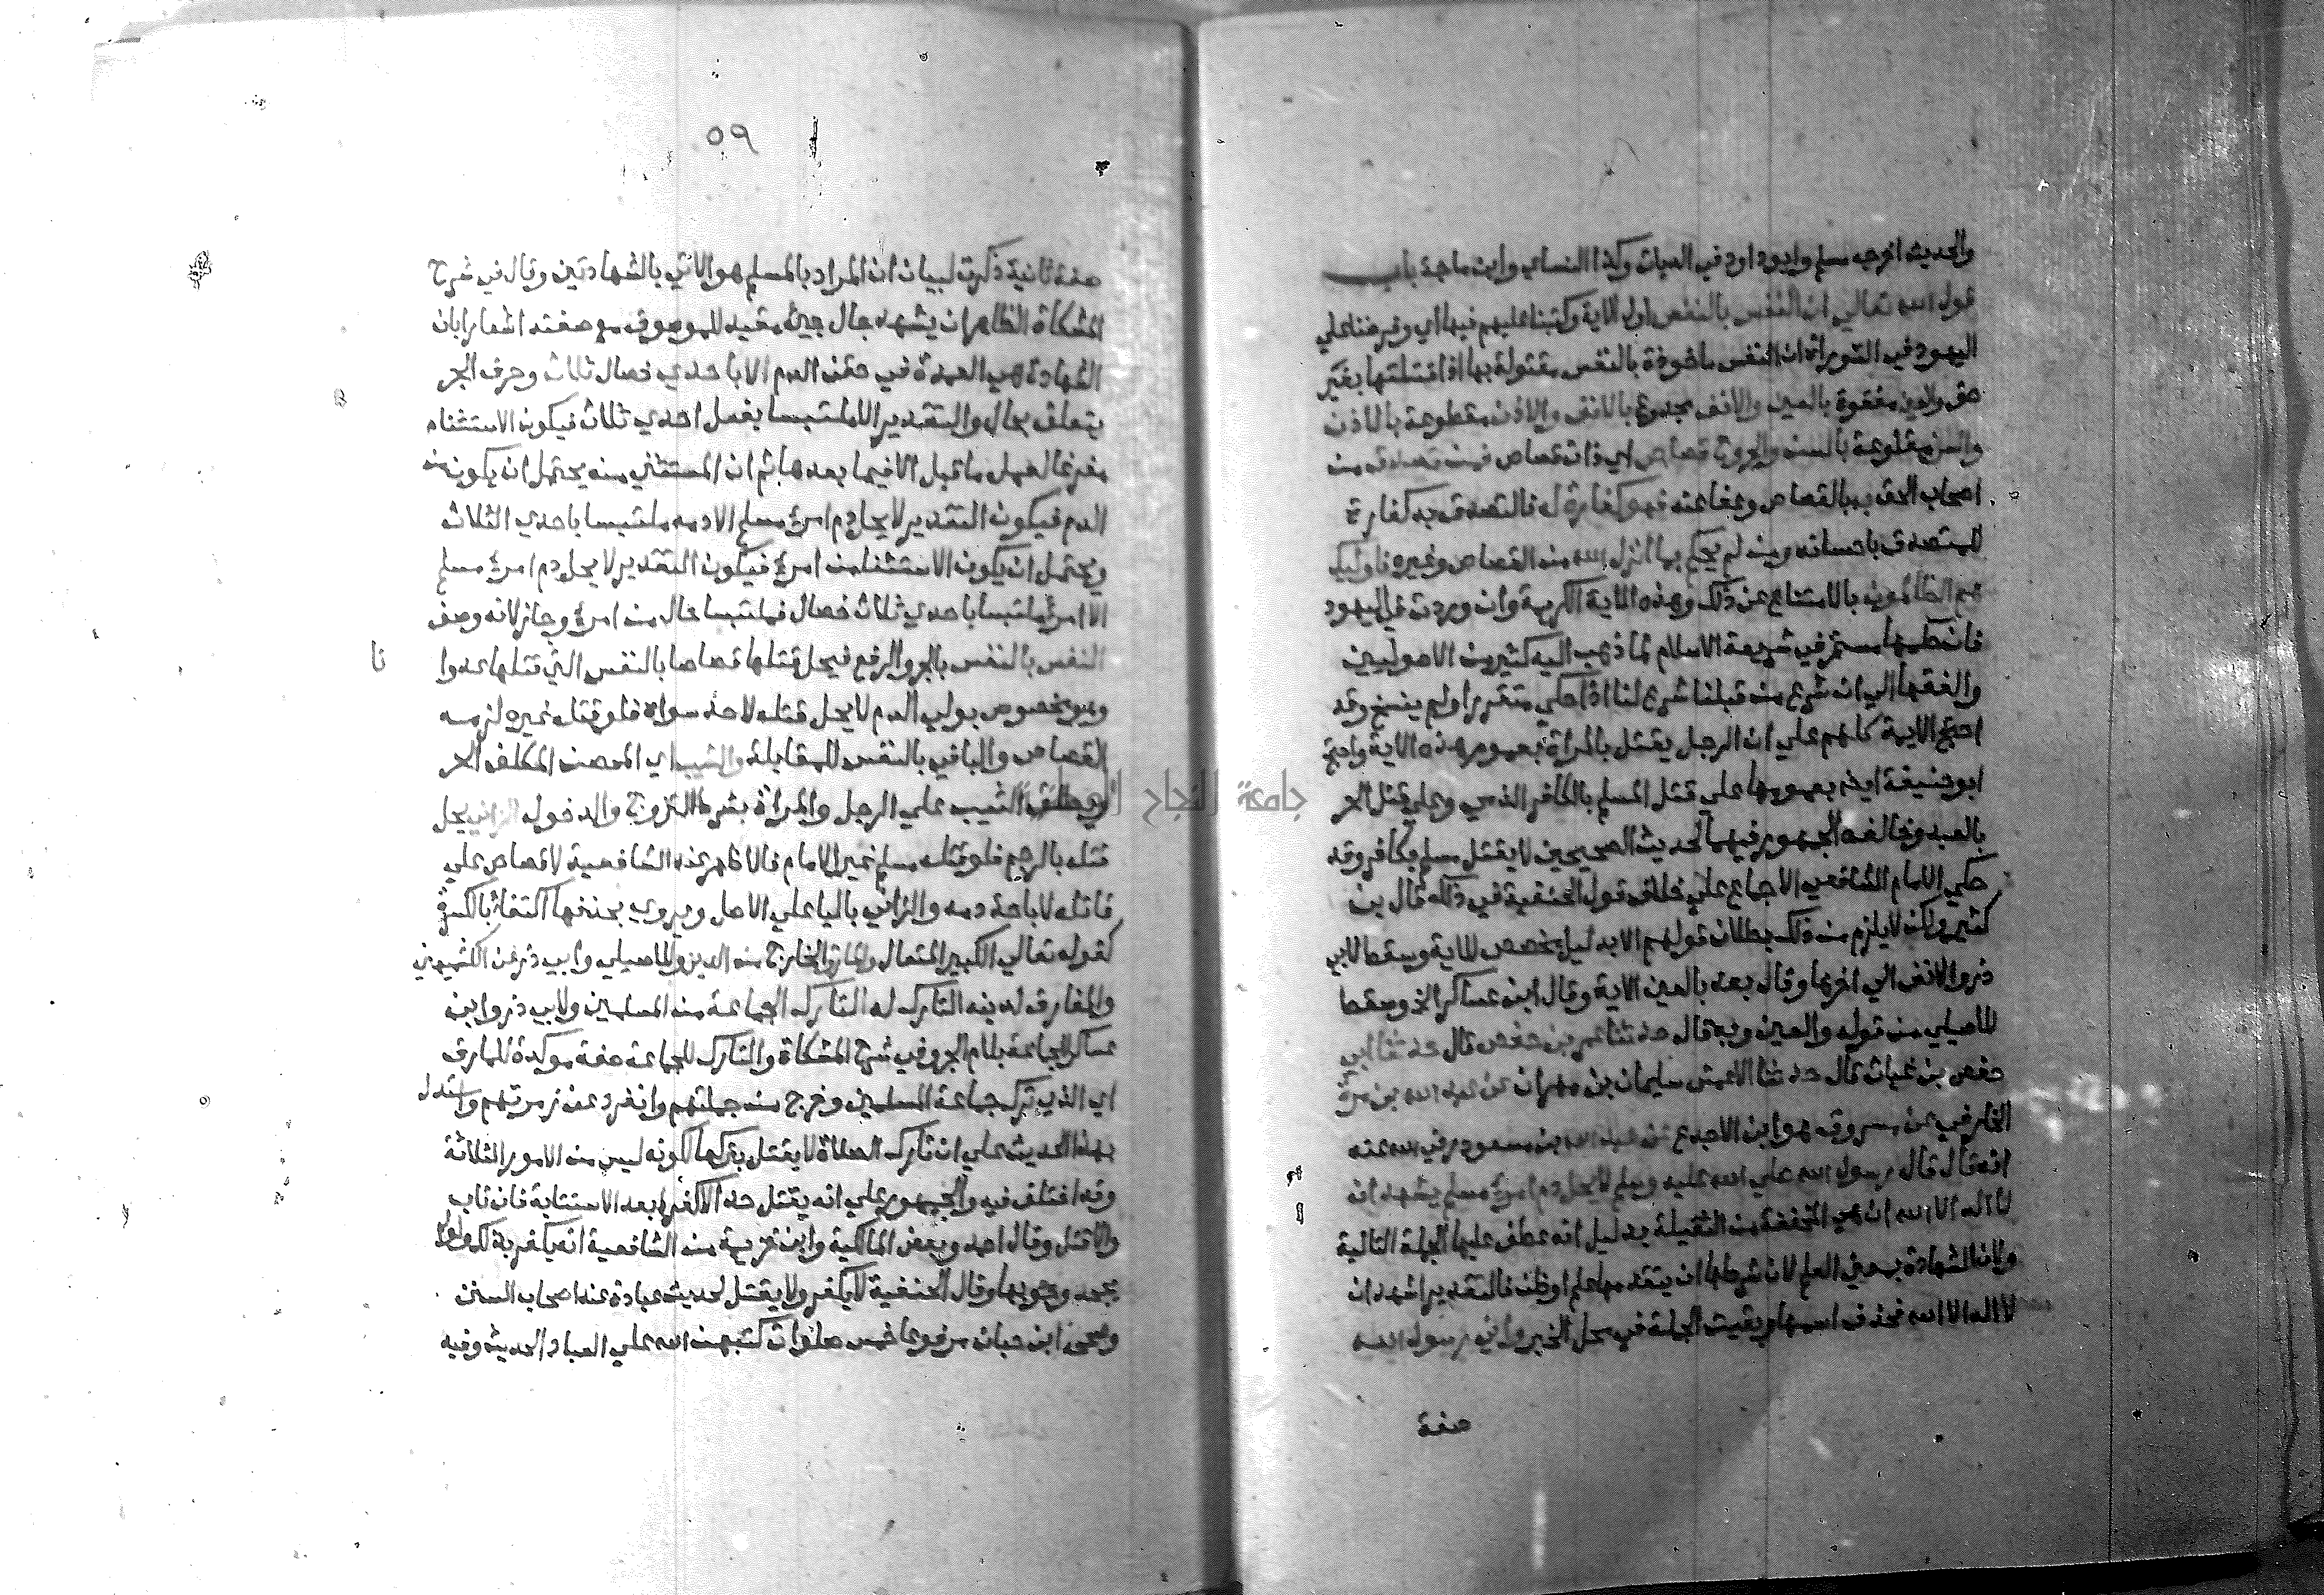 والحديث اخرجه مسلم وابوداود في الديات وكذا النساي وابن ماجة باب
قول الله تعالي ان النفس بالنفس اول الاية وكتبنا عليهم فيها اي وفرضنا علي
اليهود في التوراة ان النفس ماخوذة بالنفس مقتولة بها اذا قتلتها بغير
حق والعين مفقوة بالعين والانف مجدوع بالانف والاذن مقطوعة بالاذن
والسن مقلوعة بالسن والجروح قصاص اي ذات قصاص فمن تصدق من
اصحاب الحق به بالقصاص وعفا عنه فهو كفارة له فالتصدق به كفارة
للمتصدق باحسانه ومن لم يحكم بما انزل الله من القصاص وغيره فاوليك
هم الظالمون بالامتناع عن ذلك وهذه الاية الكريمة وان وردت في اليهود
فان حكمها مستمر في شريعة الاسلام لما ذهب اليه كثير من الاصوليين
والفقها الي ان شرع من قبلنا شرع لنا اذا حكي متقررا ولم ينسخ وقد
احتج الايمة كلهم علي ان الرجل يقتل بالمراة بعموم هذه الاية واحتج
ابوحنيفة ايضا بعمومها علي قتل المسلم بالكافر الذمي وعلي قتل الحر
بالعبد وخالفه الجمهور فيهما لحديث الصحيحين لا يقتل مسلم بكافر وقد
حكي الامام الشافعي الاجماع علي خلاف قول الحنفية في ذلك قال بن
كثير ولكن لا يلزم من ذلك بطلان قولهم الا بدليل مخصص للاية وسقط لابي
ذر والانف الي اخرها وقال بعد بالعين الاية وقال ابن عساكر الخ وسقط
للاصيلي من قوله والعين وبه قال حدثنا عمر بن حفص قال حدثنا ابي
حفص بن غياث قال حدثنا الاعمش سليمان بن مهران عن عبد الله بن مرة
الخارفي عن مسروق هو ابن الاجدع عن عبد الله بن مسعود رضي الله عنه
انه قال قال رسول الله صلي الله عليه وسلم لا يحل دم امرئ مسلم يشهد ان
لا اله الا الله ان هي المخففة من الثقيلة بدليل انه عطف عليها الجملة التالية
ولان الشهادة بمعني العلم لان شرطها ان يتقدمها علم اوظن فالتقدير اشهد ان
لا اله الا الله فحذف اسمها وبقيت الجملة في محل الخبر واني رسول الله
صفة
٥٩
صفة ثانية ذكرت لبيان ان المراد بالمسلم هو الاتي بالشهادتين وقال في شرح
المشكاة الظاهر ان يشهد حال جئ مقيد للموصوف مع صفته اشعارا بان
الشهادة هي العمدة في حقن الدم الا باحدي خصال ثلاث وحرف الجر
يتعلق بحال والتقدير الا ملتبسا بفعل احدي ثلاث فيكون الاستثناء
مفرغا لعمل ما قبل الا فيما بعدها ثم ان المستثني منه يحتمل ان يكون من
الدم فيكون التقدير لا يحل دم امرئ مسلم الا دمه ملتبسا باحدي الثلاث
ويحتمل ان يكون الاستثنا من امرئ فيكون التقدير لا يحل دم امرئ مسلم
الا امرئ ملتبسا باحدي ثلاث خصال فملتبسا حال من امرئ وجاز لانه وصف
النفس بالنفس بالجر والرفع فيحل قتلها قصاصا بالنفس التي قتلها عدوا
نا
وهو مخصوص بولي الدم لا يحل قتله لاحد سواه فلو قتله غيره لزمه
القصاص والباقي بالنفس للمقابلة والثيب اي المحصن المكلف الحر
ويطلق الثيب علي الرجل والمراة بشرط التزوج والدخول الزاني يحل
قتله بالرجم فلو قتله مسلم غير الامام فالاظهر عند الشافعية لا قصاص علي
قاتله لاباحة دمه والزاني باليا علي الاصل ويروي بحذفها اكتفاء بالكسرة
كقوله تعالي الكبير المتعال والمارق الخارج من الدين وللاصيلي وابي ذر عن الكشميهني
والمفارق لدينه التارك له التارك الجماعة من المسلمين ولابي ذر وابن
عساكر للجماعة بلام الجر وفي شرح المشكاة والتارك للجماعة صفة موكدة للمارق
اي الذي ترك جماعة المسلمين وخرج من جملتهم وانفرد عن زمرتهم واستدل
بهذا الحديث علي ان تارك الصلاة لا يقتل بتركها لكونه ليس من الامور الثلاثة
وقد اختلف فيه والجمهور علي انه يقتل حدا لا كفرا بعد الاستتابة فان تاب
والا قتل وقال احمد وبعض المالكية وابن خزيمة من الشافعية انه يكفر بذلك ولو لم
يجحد وجوبها وقال الحنفية لا يكفر ولا يقتل لحديث عبادة عند اصحاب السنن
وصححه ابن حبان مرفوعا خمس صلوات كتبهن الله علي العباد الحديث وفيه
جامعة النجاح